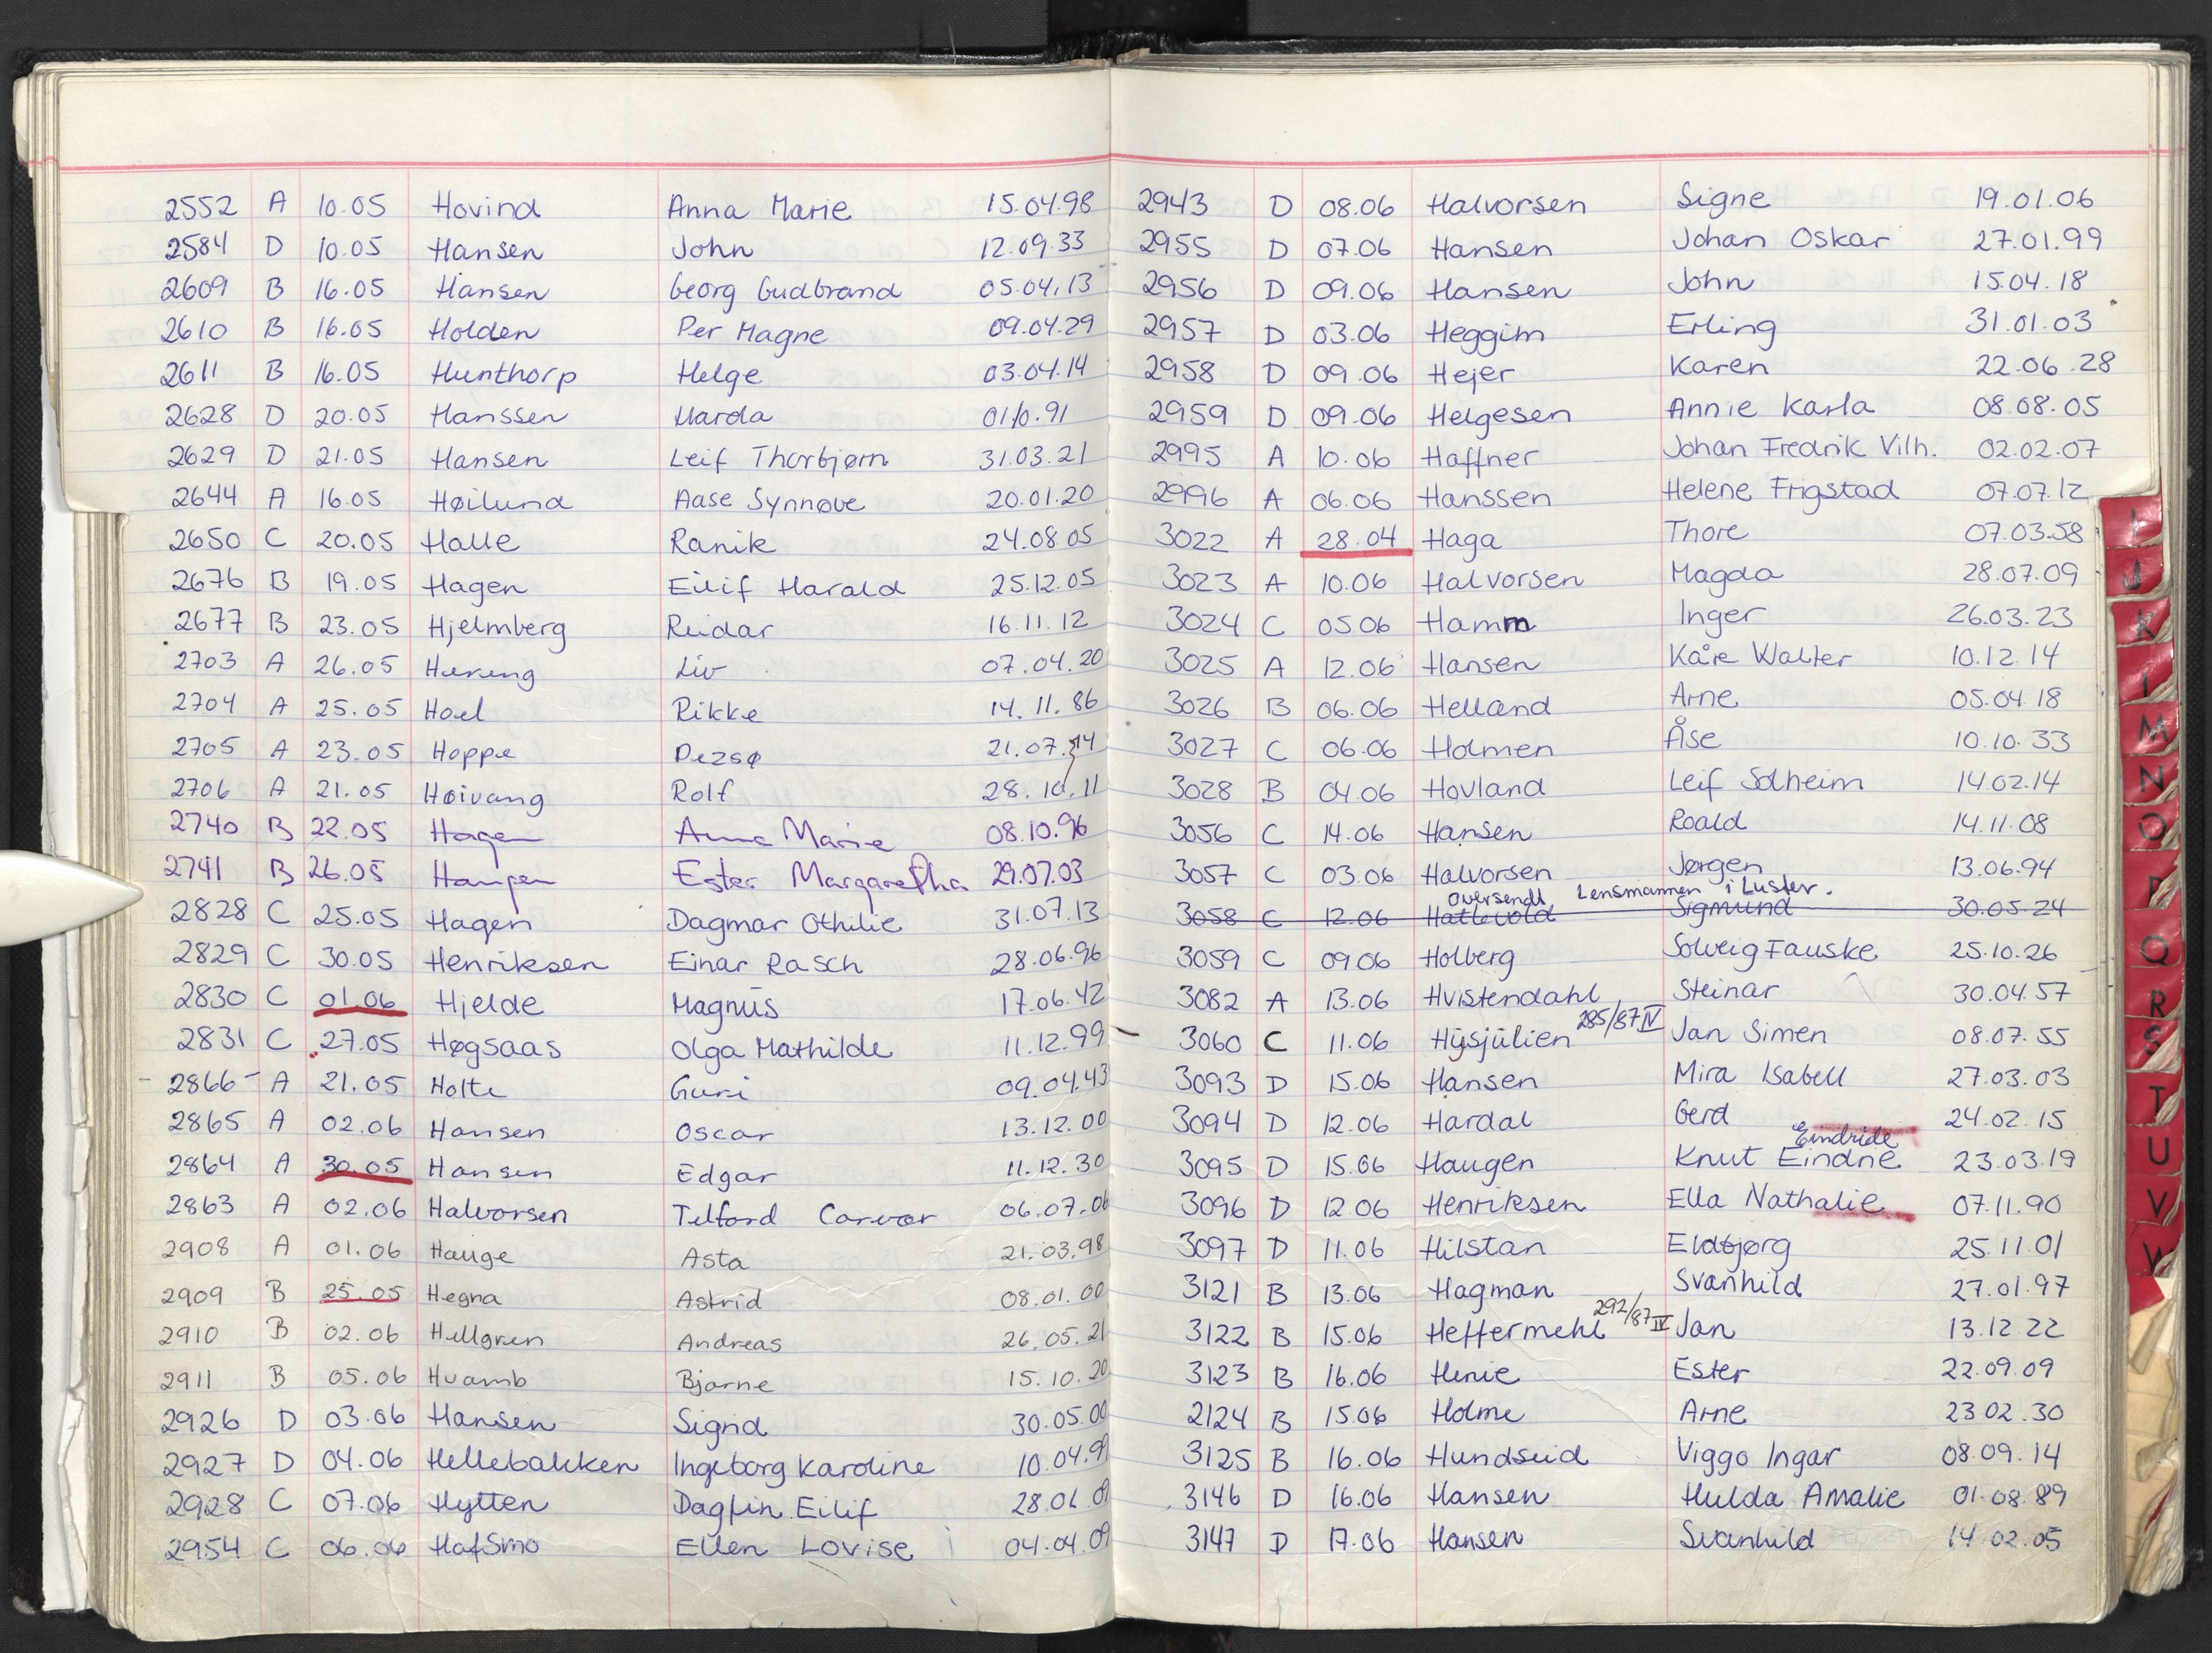 2552 A 10.05 Hovind Anna Marie 15.04.98
2584 D 10.05 Hansen John 12.09.33
2609 B 16.05 Hansen Georg Gudbrand 05.04.13
2610 B 16.05 Holden Per Magne 09.04.29
2611 B 16.05 Hunthorp Helge 03.04.14
2628 D 20.05 Hanssen Harda 01.10.91
2629 D 21.05 Hansen Leif Thorbjørn 31.03.21
2644 A 16.05 Høilund Aase Synnøve 20.01.20
2650 C 20.05 Halle Ranik 24.08.05
2676 B 19.05 Hagen Eilif Harald 25.12.05
2677 B 23.05 Hjelmberg Reidar 16.11.12
2703 A 26.05 Liv 07.04.20
2704 A 25.05 Hoel Rikke 14.11.86
2705 A 23.05 Hoppe Dezsø 21.07.14
2706 A 21.05 Høivang Rolf 28.10.11
2740 B 22.05 Hagen Anna Marie 08.10.96
2741 B 26.05 Haugen Ester Margaretha 29.07.03
2828 C 25.05 Hagen Dagmar Othilie 31.07.13
2829 C 30.05 Henriksen Einar Rasch 28.06.96
2830 C 01.06 Hjelde Magnus 17.06.42
2831 C 27.05 Høgsaas Olga Mathilde 11.12.99
2866 A 21.05 Holte Guri 09.04.43
2865 A 02.06 Hansen Oscar 13.12.00
2864 A 30.05 Hansen Edgar 11.12.30
2863 A 02.06 Halvorsen Telford 06.07.06
2908 A 01.06 Hauge Asta 21.03.98
2909 B 25.05 Hegna Astrid 08.01.00
2910 B 02.06 Hellgren Andreas 26.05.21
2911 B 05.06 Huamb Bjarne 15.10.20
2926 D 03.06 Hansen Sigrid 30.05.00
2927 D 04.06 Hellebakken Ingeborg Karoline 10.04.99
2928 C 07.06 Hytten Dagfin Eilif 28.06
2954 C 06.06 HafSmo Ellen Lovise 04.04.09
2943 D 08.06 Halvorsen Signe 19.01.06
2955 D 07.06 Hansen Johan Oskar 27.01.99
2956 D 09.06 Hansen John 15.04.18
2957 D 03.06 Heggim Erling 31.01.03
2958 D 09.06 Hejer Karen 22.06.28
2959 D 09.06 Helgesen Annie Karla 08.08.05
2995 A 10.06 Haffner Johan Fredrik Vilh. 02.02.07
2996 A 06.06 Hanssen Helene Frigstad 07.07.12
3022 A 28.04 Haga Thore 07.03.58
3023 A 10.06 Halvorsen Magda 28.07.09
3024 C 05.06 Hamm Inger 26.03.23
3025 A 12.06 Hansen Kåre Walter 10.12.14
3026 B 06.06 Helland Arne 05.04.18
3027 C 06.06 Holmen Åse 10.10.33
3028 B 04.06 Hovland Leif Solheim 14.02.14
3056 C 14.06 Hansen Roald 14.11.08
3057 C 03.06 Halvorsen Jørgen 13.06.94
oversendt Lensmannen i Luster.
3058 C 12.06 Hattevold Sigmund 30.05.24
3059 C 09.06 Holberg Solveig Fauske 25.10.26
3082 A 13.06 Hvistendahl Steinar 30.04.57
285/87 IV
3060 C 11.06 Hysjulien Jan Simen 08.07.55
3093 D 15.06 Hansen Mira Isabell 27.03.03
3094 D 12.06 Hardal Gerd 24.02.15
Eindride
3095 D 15.06 Haugen Knut Eindrie 23.03.19
3096 D 12.06 Henriksen Ella Nathalie 07.11.90
3097 D 11.06 Hilstan Eldbjørg 25.11.01
3121 B 13.06 Hagman Svanhild 27.01.97
292/87 IV
3122 B 15.06 Heffermehl Jan 13.12.22
3123 B 16.06 Henie Ester 22.09.09
2124 B 15.06 Holme Arne 23.02.30
3125 B 16.06 Hundseid Viggo Ingar 08.09.14
3146 D 16.06 Hansen Hulda Amalie 01.08.89
3147 D 17.06 Hansen Svanhild 14.02.05
I
J
K
L
M
N
O
P
Q
R
S
T
U
V